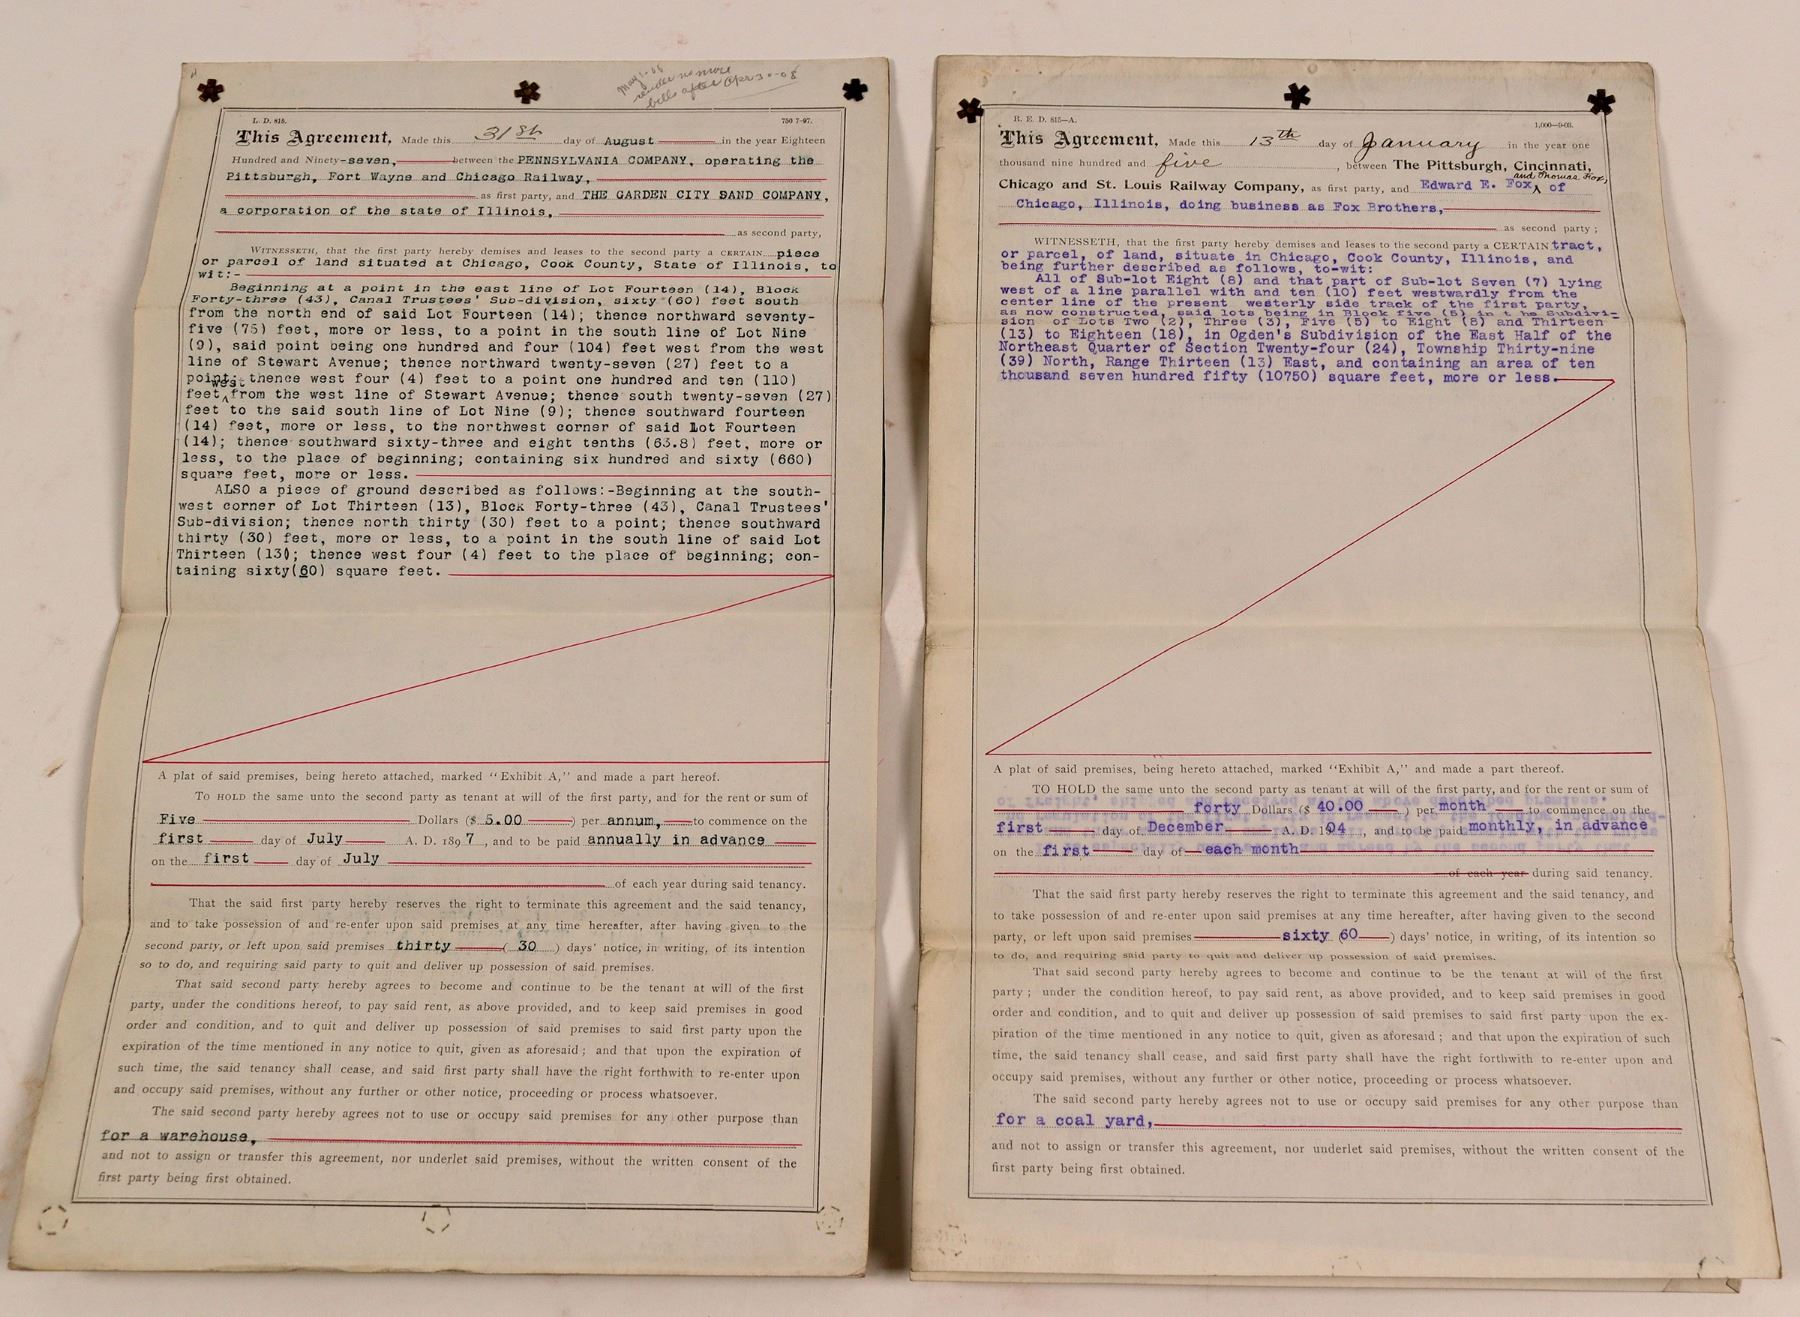 May 1-08
render no more
bills after Apr 30-08
L. D. 815.
750 7-97.
This Agreement, Made this 31st day of August in the year Eighteen
Hundred and Ninety-seven, between the PENNSYLVANIA COMPANY, operating the
Pittsburgh, Fort Wayne and Chicago Railway,
as first party, and THE GARDEN CITY SAND COMPANY,
a corporation of the state of Illinois,
as second party,
WITNESSETH, that the first party hereby demises and leases to the second party a CERTAIN piece
or parcel of land situated at Chicago, Cook County, State of Illinois, to
wit:-
Beginning at a point in the east line of Lot Fourteen (14), Block
Forty-three (43), Canal Trustees' Sub-division, sixty (60) feet south
from the north end of said Lot Fourteen (14); thence northward seventy-
five (75) feet, more or less, to a point in the south line of Lot Nine
(9), said point being one hundred and four (104) feet west from the west
line of Stewart Avenue; thence northward twenty-seven (27) feet to a
point; thence west four (4) feet to a point one hundred and ten (110)
west
feet ‸ from the west line of Stewart Avenue; thence south twenty-seven (27)
feet to the said south line of Lot Nine (9); thence southward fourteen
(14) feet, more or less, to the northwest corner of said Lot Fourteen
(14); thence southward sixty-three and eight tenths (63.8) feet, more or
less, to the place of beginning; containing six hundred and sixty (660)
square feet, more or less.
ALSO a piece of ground described as follows:-Beginning at the south-
west corner of Lot Thirteen (13), Block Forty-three (43), Canal Trustees'
Sub-division; thence north thirty (30) feet to a point; thence southward
thirty (30) feet, more or less, to a point in the south line of said Lot
Thirteen (13); thence west four (4) feet to the place of beginning; con-
taining sixty(60) square feet.
A plat of said premises, being hereto attached, marked "Exhibit A," and made a part hereof.
TO HOLD the same unto the second party as tenant at will of the first party, and for the rent or sum of
Five Dollars ($ 5.00 ) per annum, to commence on the
first day of July A. D. 1897, and to be paid annually in advance
on the first day of July
of each year during said tenancy.
That the said first party hereby reserves the right to terminate this agreement and the said tenancy,
and to take possession of and re-enter upon said premises at any time hereafter, after having given to the
second party, or left upon said premises thirty ( 30 ) days' notice, in writing, of its intention
so to do, and requiring said party to quit and deliver up possession of said premises.
That said second party hereby agrees to become and continue to be the tenant at will of the first
party, under the conditions hereof, to pay said rent, as above provided, and to keep said premises in good
order and condition, and to quit and deliver up possession of said premises to said first party upon the
expiration of the time mentioned in any notice to quit, given as aforesaid; and that upon the expiration of
such time, the said tenancy shall cease, and said first party shall have the right forthwith to re-enter upon
and occupy said premises, without any further or other notice, proceeding or process whatsoever.
The said second party hereby agrees not to use or occupy said premises for any other purpose than
for a warehouse,
and not to assign or transfer this agreement, nor underlet said premises, without the written consent of the
first party being first obtained.
R. E. D. 815-A.
1,000-9-03.
This Agreement, Made this 13th day of January in the year one
thousand nine hundred and five, between The Pittsburgh, Cincinnati,
and Thomas Fox,
Chicago and St. Louis Railway Company, as first party, and Edward E. Fox ‸ of
Chicago, Illinois, doing business as Fox Brothers,
as second party;
WITNESSETH, that the first party hereby demises and leases to the second party a CERTAIN tract,
or parcel, of land, situate in Chicago, Cook County, Illinois, and
being further described as follows, to-wit:
All of Sub-lot Eight (8) and that part of Sub-lot Seven (7) lying
west of a line parallel with and ten (10) feet westwardly from the
center line of the present westerly side track of the first party,
as now constructed, said lots being in Block five (5) in t he Subdivi-
sion of Lots Two (2), Three (3), Five (5) to Eight (8) and Thirteen
(13) to Eighteen (18), in Ogden's Subdivision of the East Half of the
Northeast Quarter of Section Twenty-four (24), Township Thirty-nine
(39) North, Range Thirteen (13) East, and containing an area of ten
thousand seven hundred fifty (10750) square feet, more or less.
A plat of said premises, being hereto attached, marked "Exhibit A," and made a part thereof.
TO HOLD the same unto the second party as tenant at will of the first party, and for the rent or sum of
forty Dollars ($ 40.00 ) per month to commence on the
first day of December A. D. 1904, and to be paid monthly, in advance
on the first day of each month
of each year during said tenancy.
That the said first party hereby reserves the right to terminate this agreement and the said tenancy, and
to take possession of and re-enter upon said premises at any time hereafter, after having given to the second
party, or left upon said premises sixty (60 ) days' notice, in writing, of its intention so
to do, and requiring said party to quit and deliver up possession of said premises.
That said second party hereby agrees to become and continue to be the tenant at will of the first
party; under the condition hereof, to pay said rent, as above provided, and to keep said premises in good
order and condition, and to quit and deliver up possession of said premises to said first party upon the ex-
piration of the time mentioned in any notice to quit, given as aforesaid; and that upon the expiration of such
time, the said tenancy shall cease, and said first party shall have the right forthwith to re-enter upon and
occupy said premises, without any further or other notice, proceeding or process whatsoever.
The said second party hereby agrees not to use or occupy said premises for any other purpose than
for a coal yard,
and not to assign or transfer this agreement, nor underlet said premises, without the written consent of the
first party being first obtained.